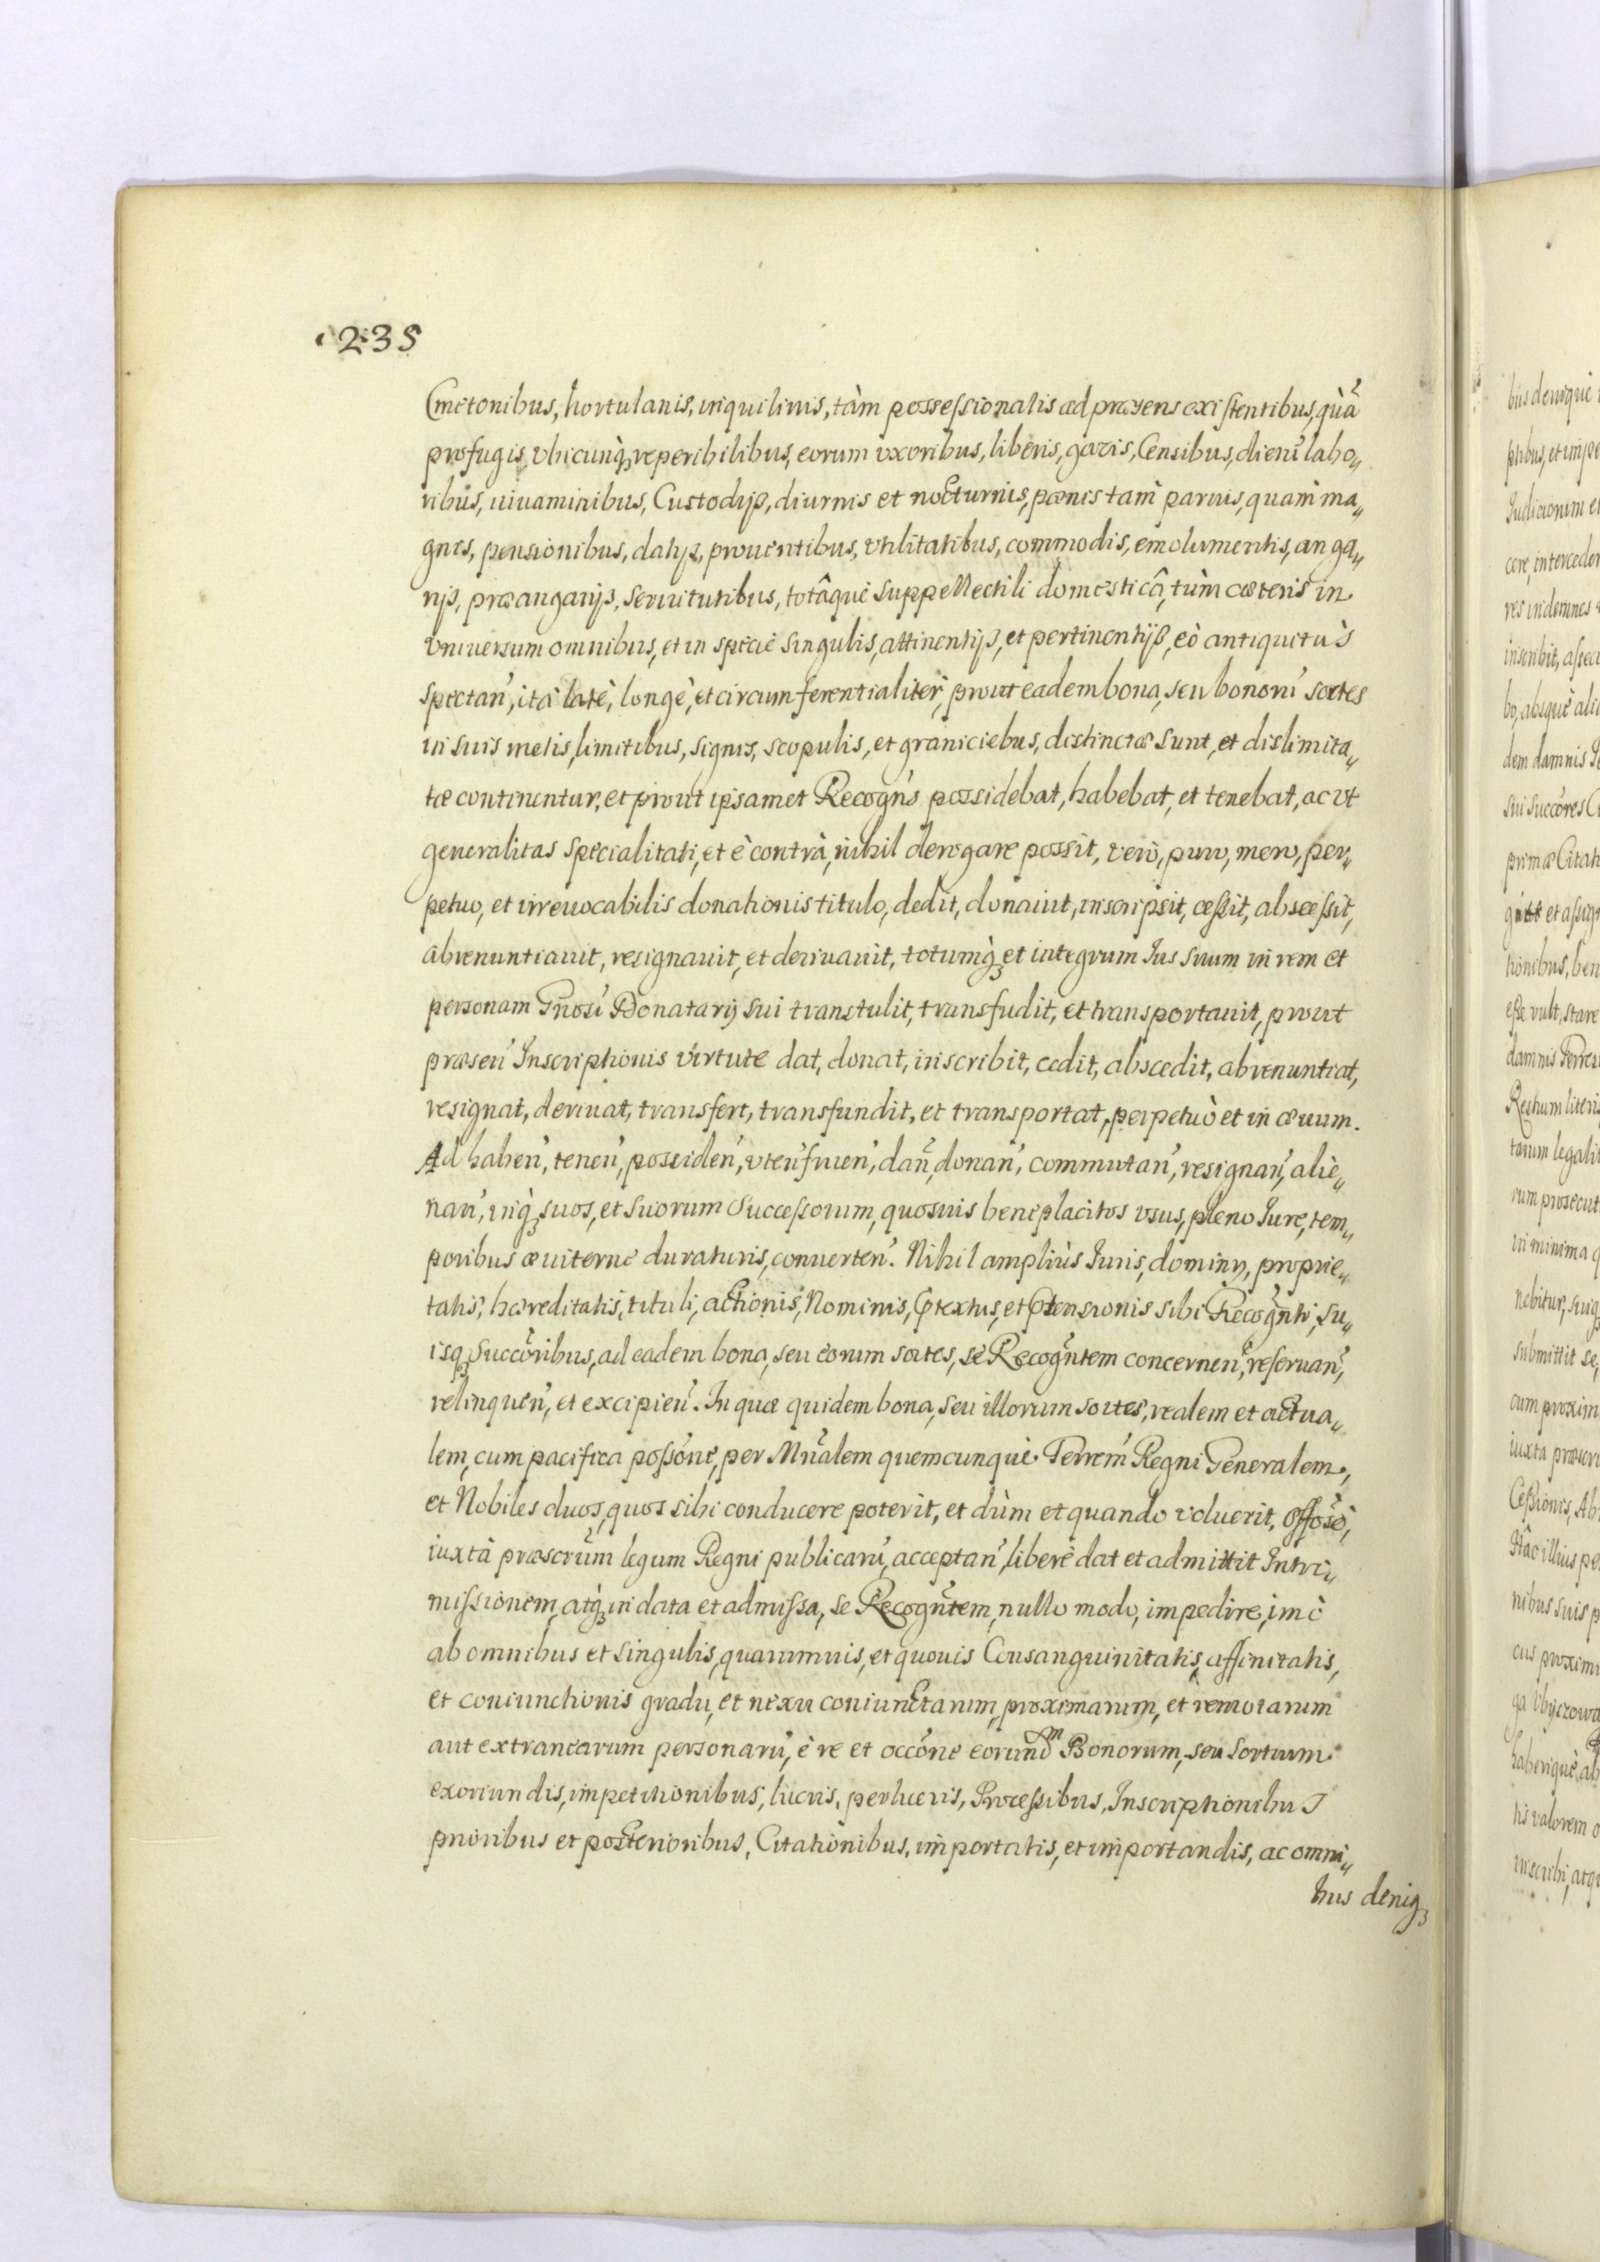 235
Cmetonibus, hortulanis, inquilinis, tàm possessionatis ad præsens existentibus, quã
profugis, vbicunq̀ reperibilibus, eorum vxoribus, liberis, gazis, Censibus, dierũ labo„
ribus, viuaminibus, Custodijs, diurnis et nocturnis, pœnis tam̀ paruis, quam̀ ma„
gnis, pensionibus, datijs, prouentibus, vtilitatibus, commodis, emolumentis, anga„
rijs, præangarijs, seruitutibus, totâque suppellectili domesticâ, tùm cæteris in
vniuersum omnibus, et in specie singulis, attinentijs, et pertinentijs, eò antiquitus̀
spectan̄, ita latè, longè, et circumferentialiter, prout eadem bona, seu bonorū sortes
in suis metis, limitibus, signis, scopulis, et graniciebus, distinctæ sunt, et dislimita„
tæ continentur, et prout ipsamet Recogn̄s possidebat, habebat, et tenebat, ac vt
generalitas specialitati, et è contrà, nihil derogare possit, vero, puro, mero, per„
petuo, et irreuocabilis donationis titulo, dedit, donauit, inscripsit, cessit, abscessit,
abrenuntiauit, resignauit, et deriuauit, totumq̀ et integrum Ius suum in rem et
personam Gñosi Donatarij sui transtulit, transfudit, et transportauit, prout
præsen̄ Inscriptionis virtute dat, donat, inscribit, cedit, abscedit, abrenuntiat,
resignat, deriuat, transfert, transfundit, et transportat, perpetuò et in æuum.
Ad haben̄, tenen̄, possiden̄, vten̄fruen̄, dan̄, donan̄, commutan̄, resignan̄, alie„
nan̄, inq̀ suos, et suorum Successorum, quosuis beneplacitos vsus, pleno Iure, tem„
poribus æuiterne duraturis, conuerten̄. Nihil ampliùs Iuris, dominij, proprie„
tatis, hæreditatis, tituli, actionis, Nominis, Prtextus, et Prtensionis sibi Recogñti, su„
isq̀ Succõribus, ad eadem bona, seu eorum sortes, se Recogñtem concernen̄, reseruan̄,
relinquen̄, et excipien̄. In quæ quidem bona, seu illorum sortes, realem et actua„
lem, cum pacifica possõne, per Mñralem quemcunque Terrem̄ Regni Generalem,
et Nobiles duos, quos sibi conducere poterit, et dùm et quando voluerit, Offosè,
iuxta præscrũm legum Regni publicarū, acceptan̄, liberè dat et admittit Intro„
missionem, atq̀ in data et admissa, se Recogñtem, nullo modo, impedire, imò
ab omnibus et singulis, quarumuis, et quouis Consanguinitatis, affinitatis,
et coniunctionis gradu, et nexu coniunctarum, proximarum, et remotarum
aut extranearum personarū, è re et occõne eorundm Bonorum, seu Sortium
exoriundis, impetitionibus, lucris, perlucris, Processibus, Inscriptionibus
prioribus et posterioribus, Citationibus, importatis, et importandis, ac omni„
bus deniq̀